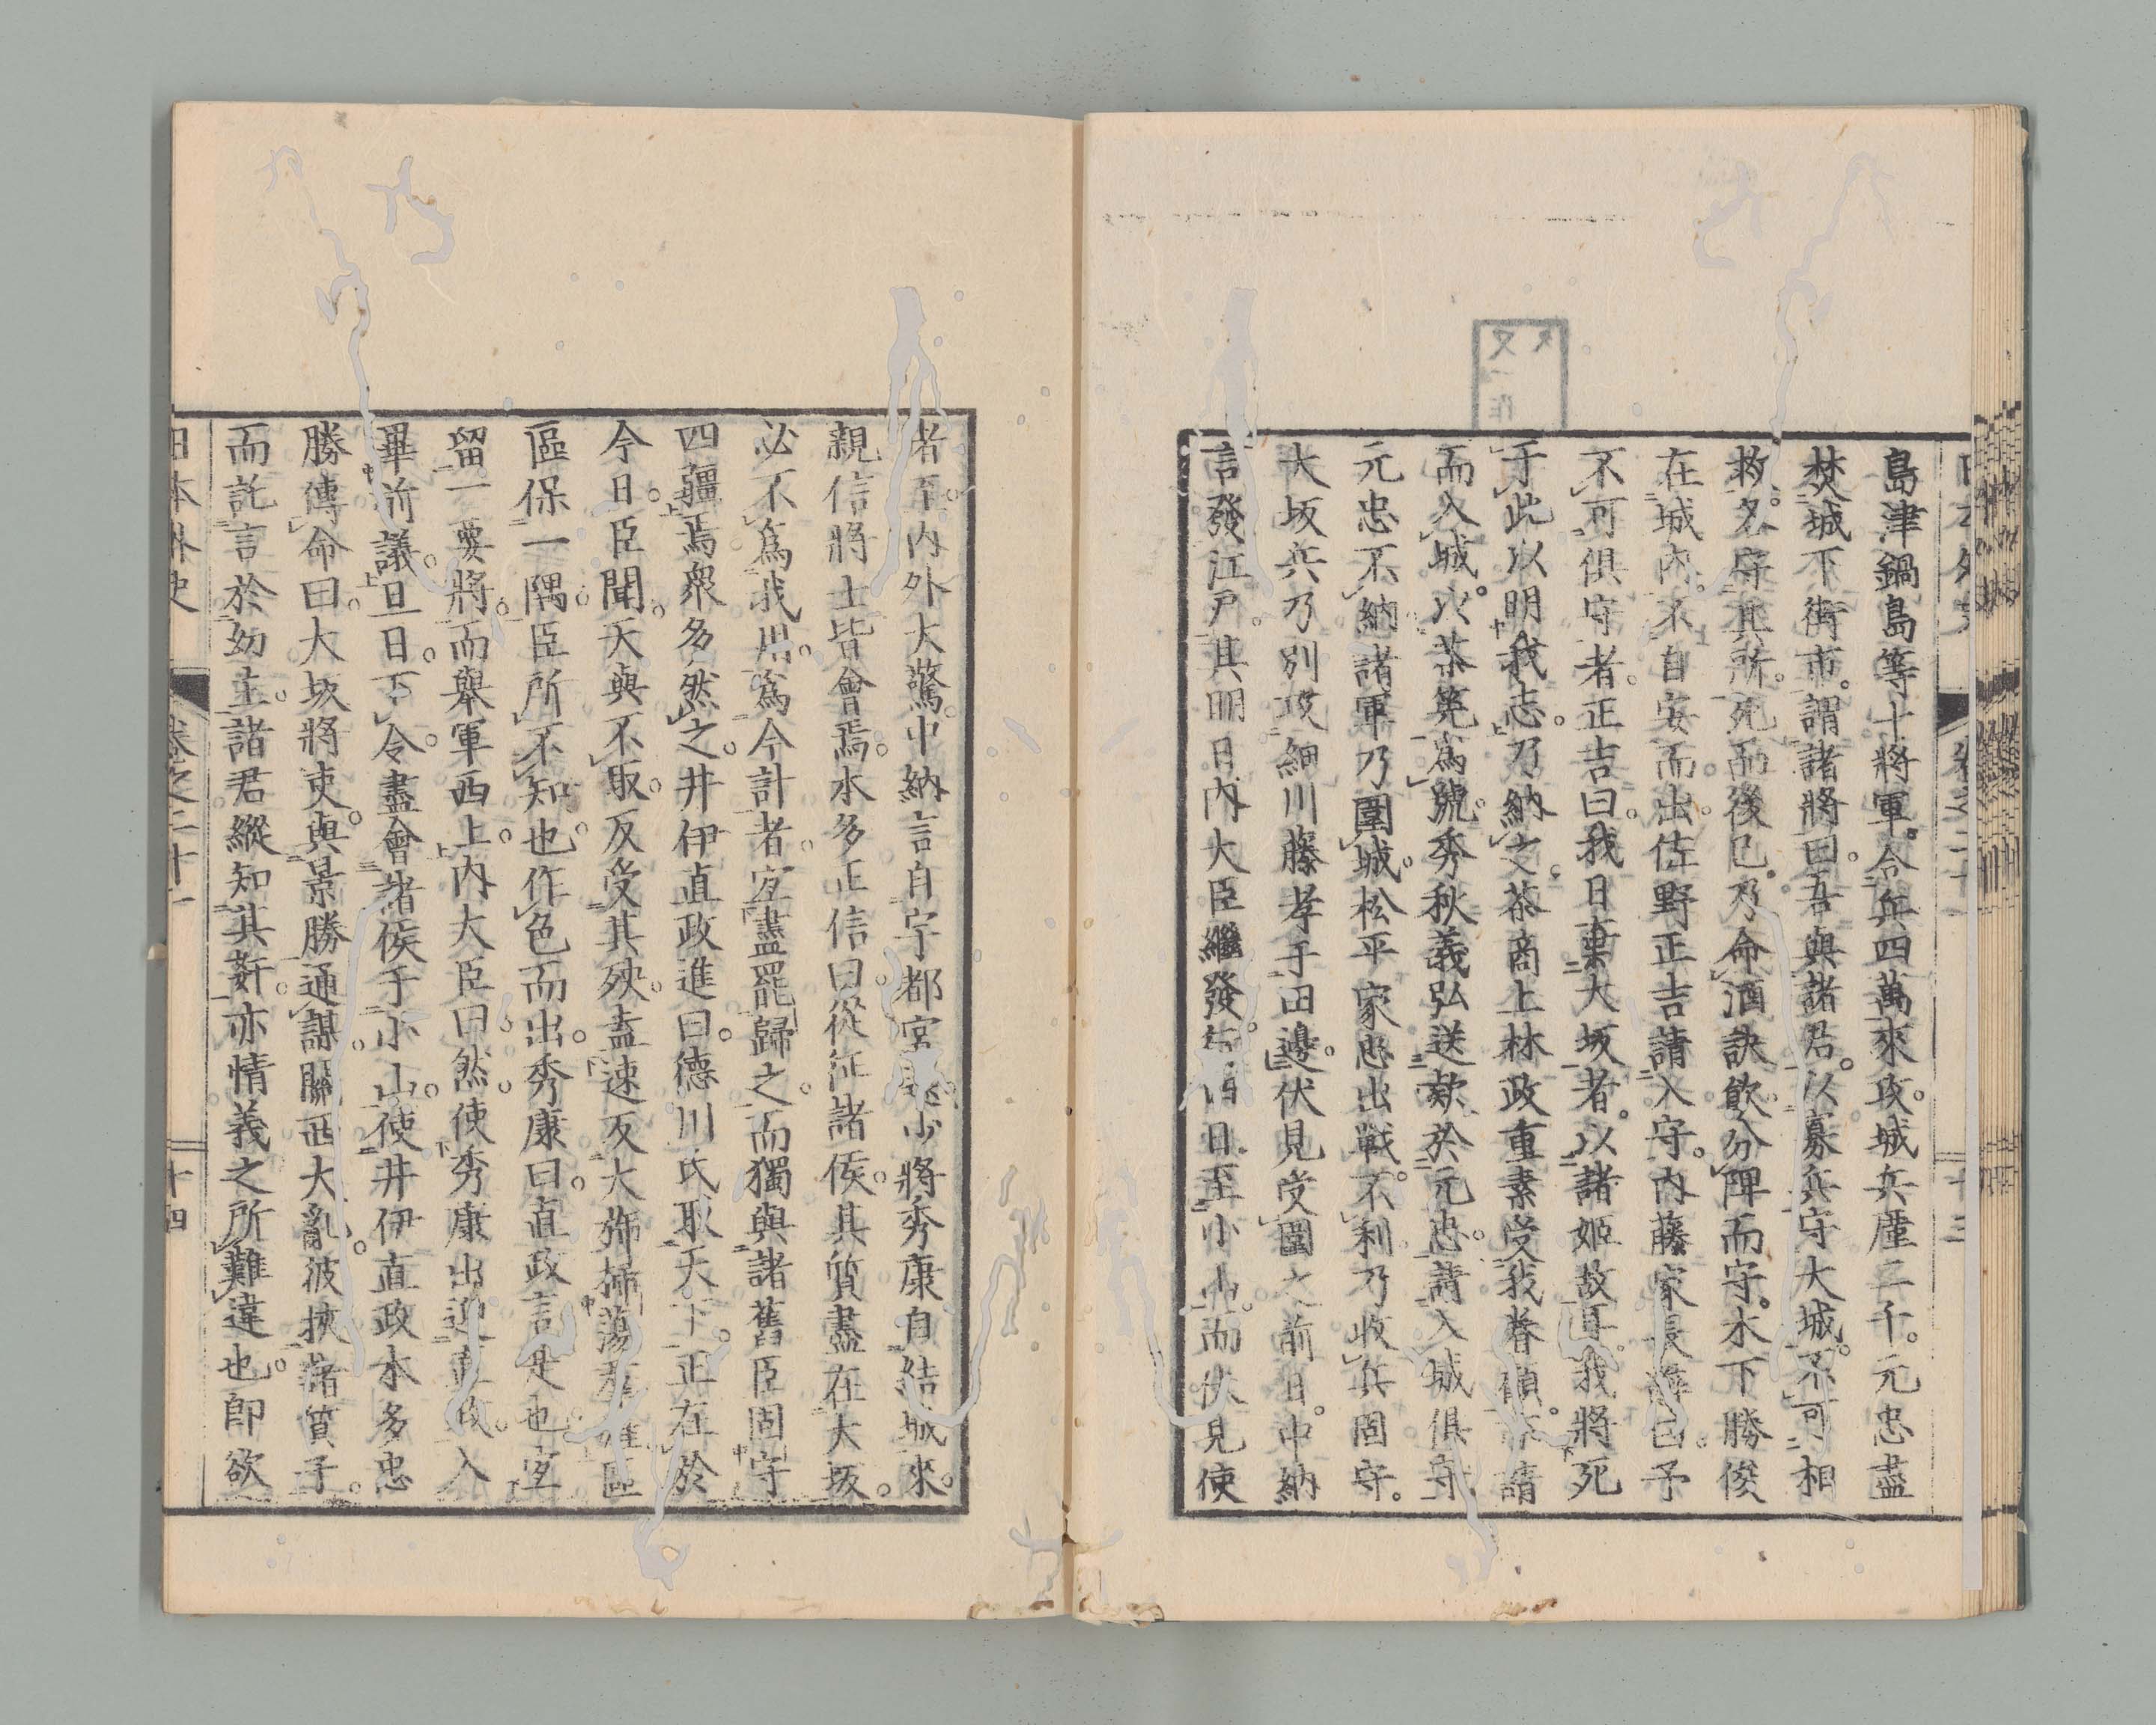 島津鍋島等十將軍。合兵四萬來攻。城兵廑二千。元忠盡
焚城下街市。謂諸將曰。吾與諸君。以寡兵守大城。不可相
救。各守其所。死而後已。乃命酒訣飲。分陴而守。木下勝俊
在城內。不自安而出。佐野正吉請入守。內藤家長曰。予
不可俱守者。正吉曰。我日棄大坂者。以諸姬故耳。我將死
于此以明我志。乃納之。茶商上林政重素受我眷顧。請
而入城。以茶筅爲號。秀秋義弘送款於元忠。請入城俱守
元忠不納。諸軍乃圍城。松平家忠出戰。不利。乃收兵固守。
大坂兵乃別攻細川藤孝于田邊。伏見受圍之前日。中納
言發江戶。其明日。內大臣繼發。日。至小山。而伏見使
者至。內外大驚。中納言自宇都宮。少將秀康自結城來。
親信將士皆會焉。本多正信曰。從征諸侯。其質盡在大坂。
必不爲我用。爲今計者。宜盡罷歸之。而獨與諸舊臣固守
四疆焉。衆多然之。井伊直政進曰。德川氏取天下。正在於
今日。臣聞。天與不取。反受其殃。盍速反大旆掃蕩。區
區保一隅。臣所不知也。作色而出。秀康曰。直政言是也。宜
留一要將。而舉軍西上。內大臣曰。然。使秀康出迎直政入
畢前議。旦日。下令。盡會諸侯于小山。使井伊直政本多忠
勝傳命曰。大坂將吏。與景勝通謀。關西大亂。彼挾諸質子。
而託言於幼主。諸君縱知其姧。亦情義之所難違也。卽欲
日本外史 卷之二十一 十四